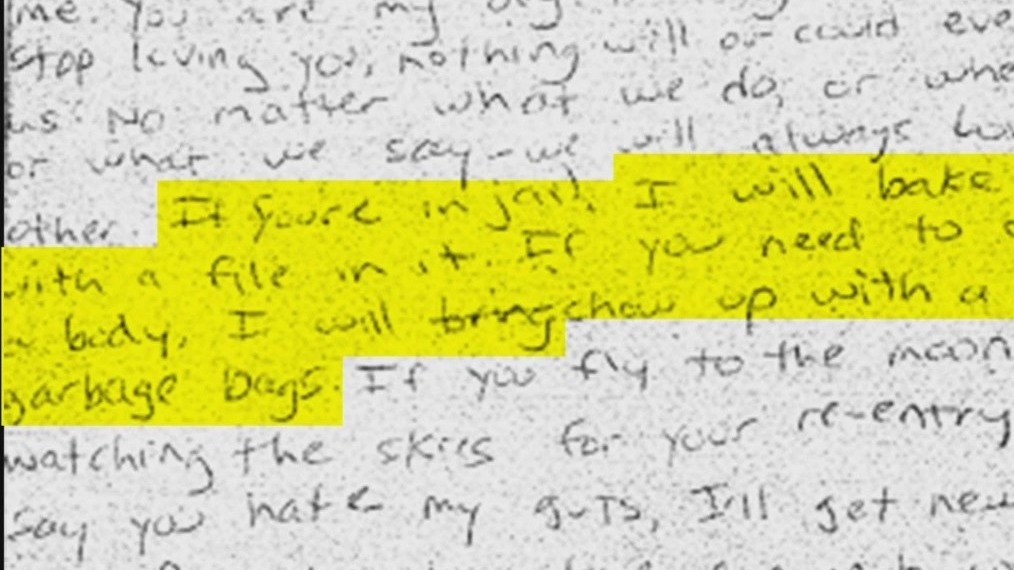 me. You are my
stop loving you, nothing will or could eve
us. No matter what we do, or whe
or what we say - we will always lov
other. If you're in jail, I will bake
with a file in it. If you need to
a body, I will bring show up with a
garbage bags. If you fly to the moon
watching the skies for your re-entry
say you hate my guts, I'll get new